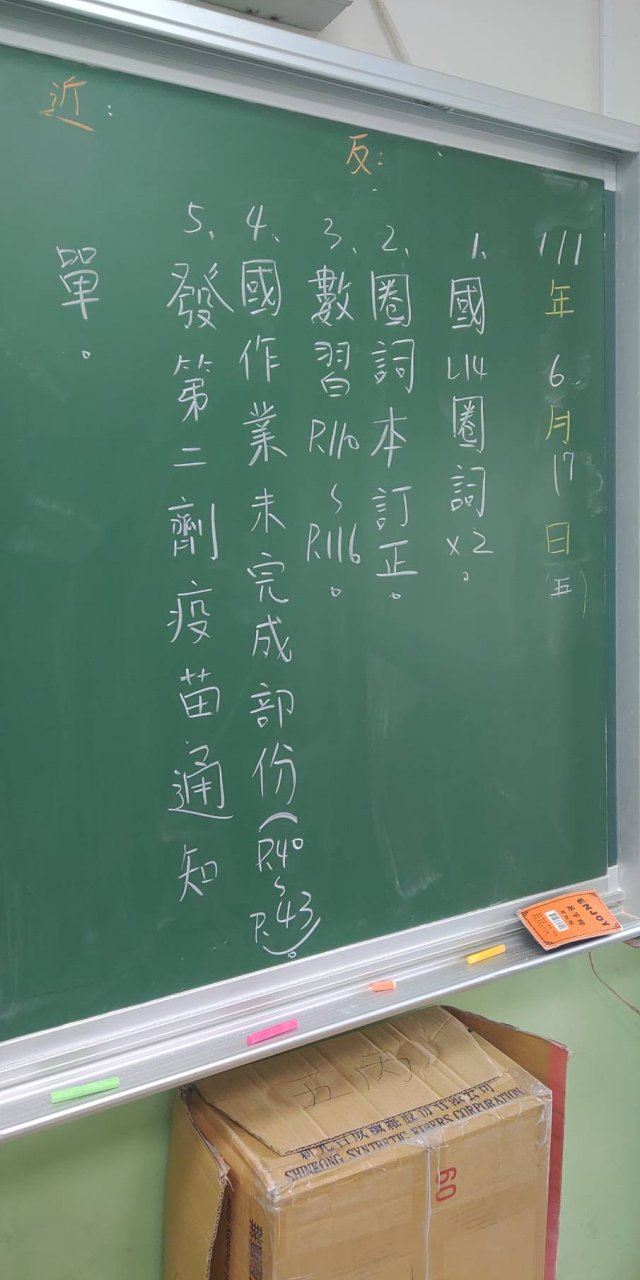 111年6月17日(五)
1、國L14圈詞x2。
2、圈詞本訂正。
3、數習P.110~P.116。
4、國作業未完成部份(P.40~P.43)。
5、發第二劑疫苗通知
單。
反:
近:
ENJOY
五丙
SHINKONG SYNTHETIC FIBERS CORPORATION
60